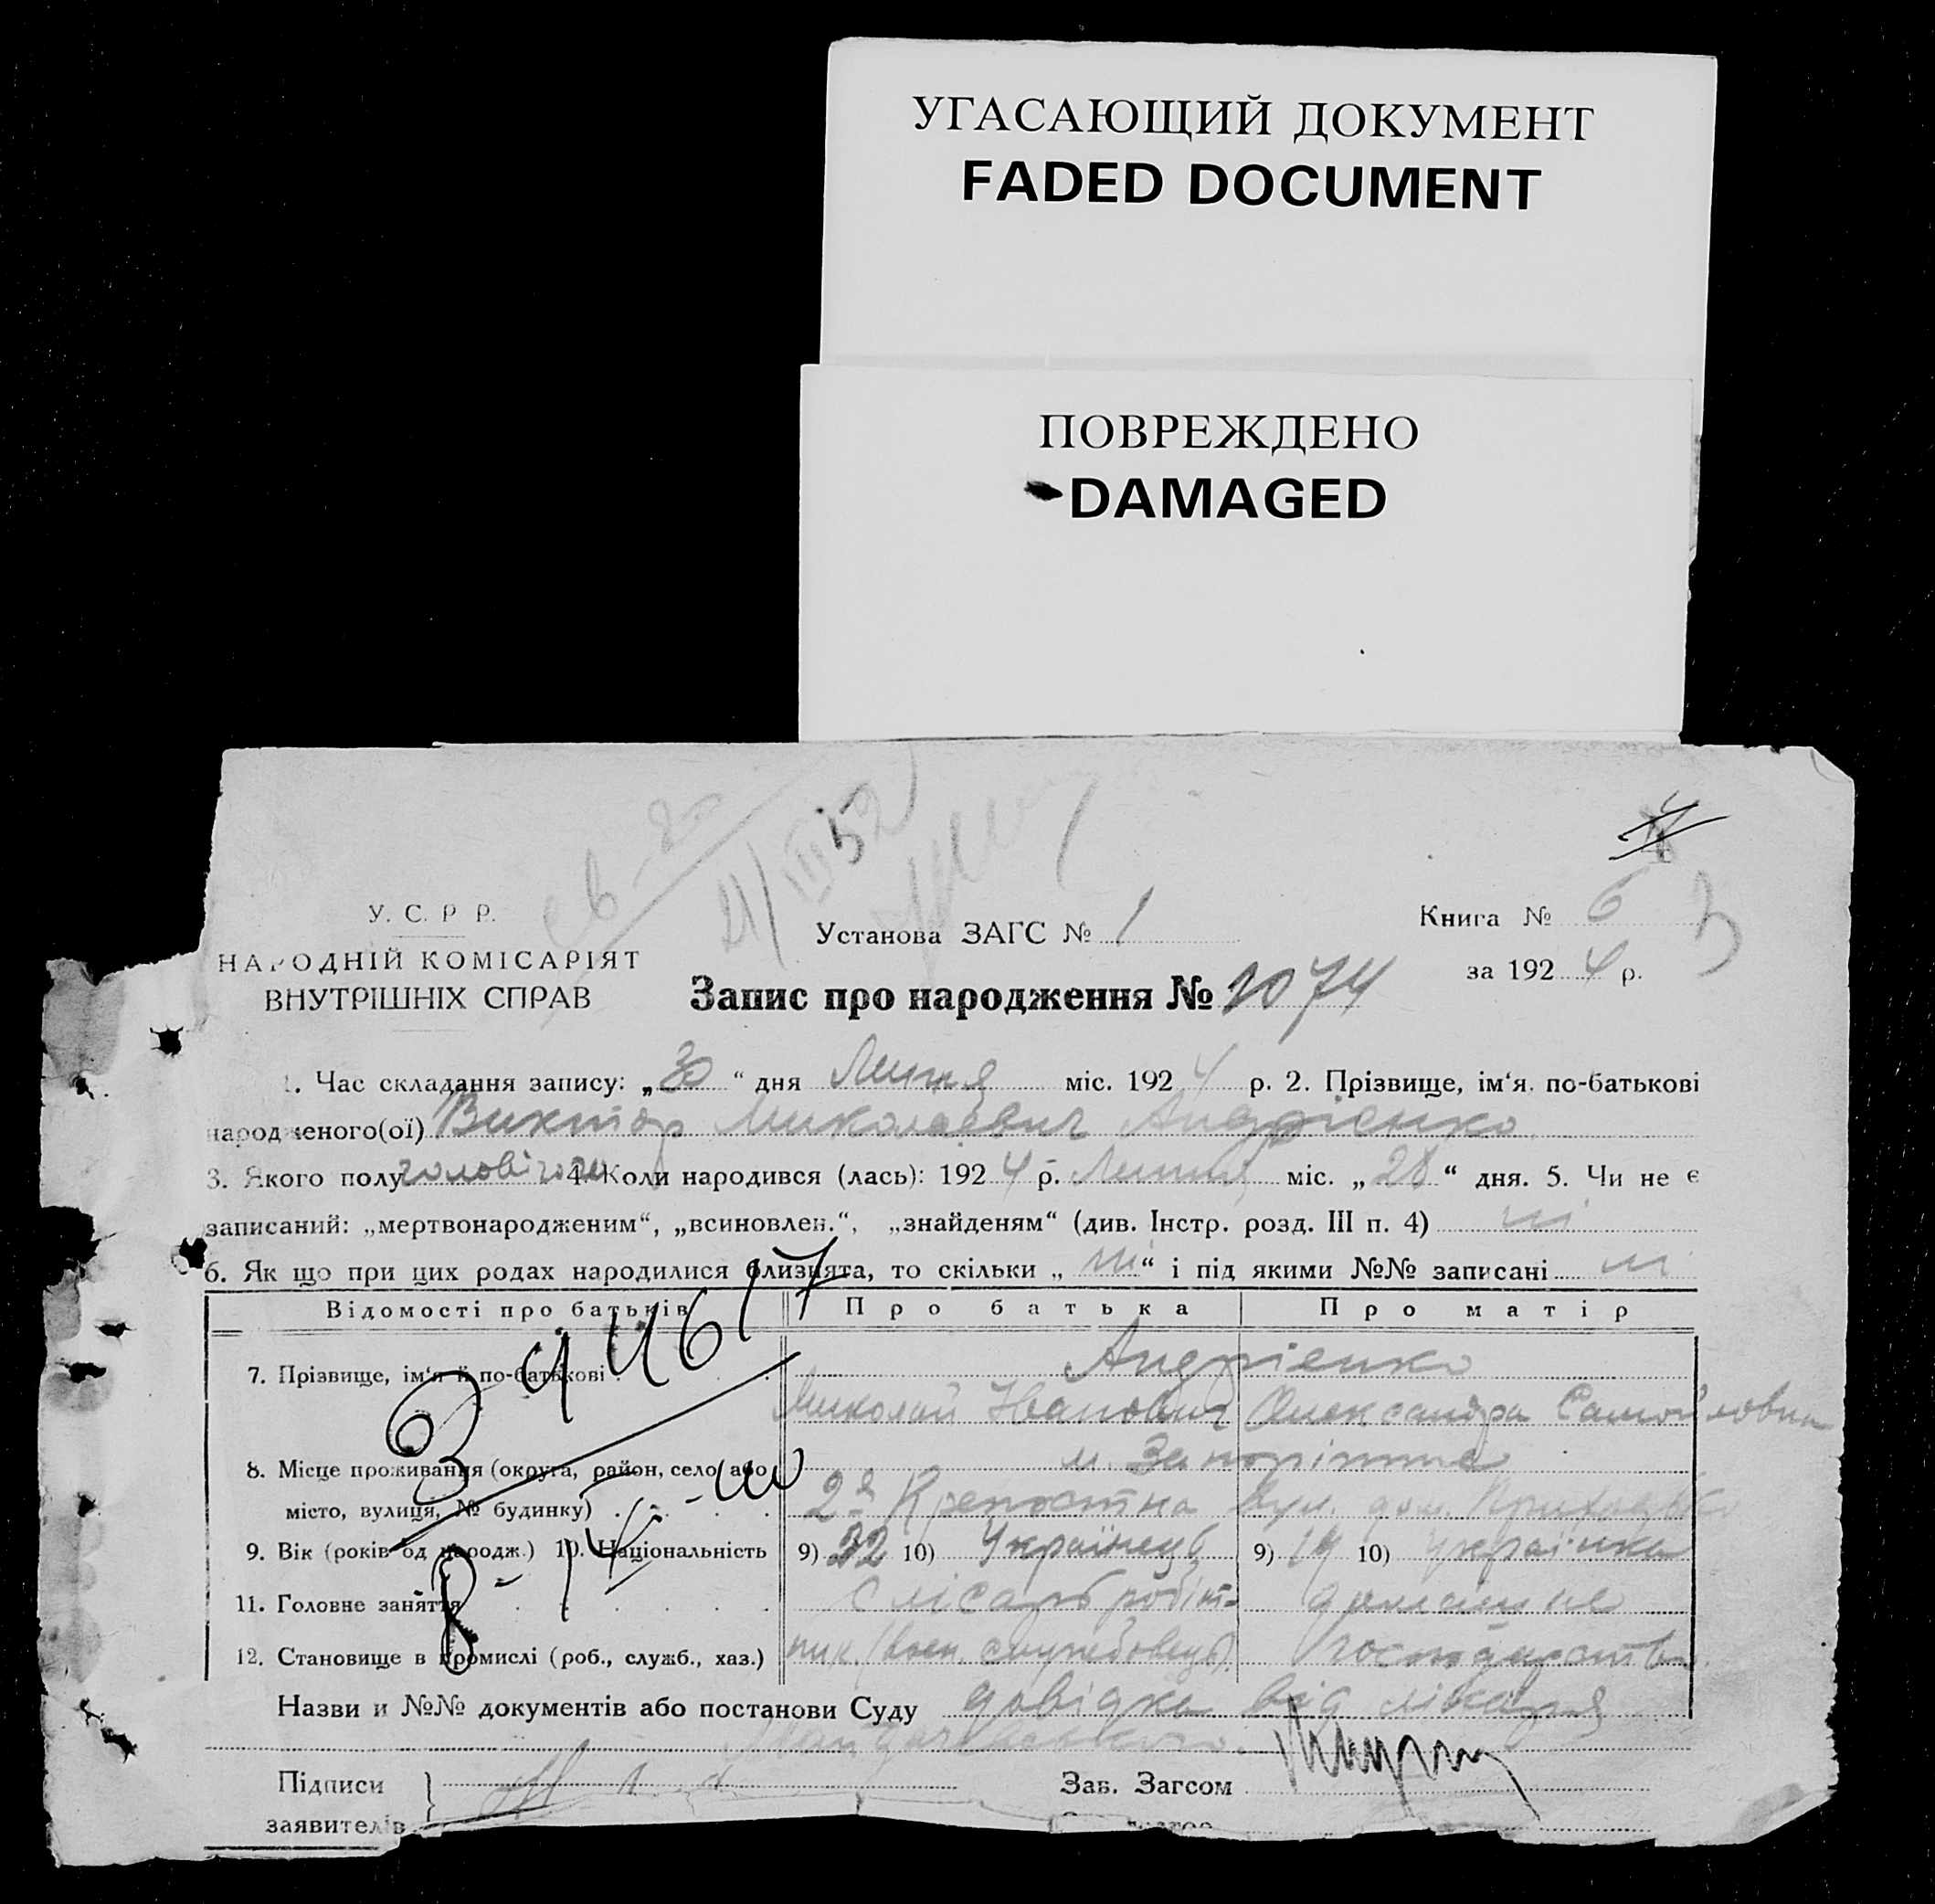 УГАСАЮЩИЙ ДОКУМЕНТ
FADED DOCUMENT
ПОВРЕЖДЕНО
DAMAGED
4
21/III 52
У. С. Р Р.
Установа ЗАГС № 1
Книга № 6
3
НАРОДНІЙ КОМІСАРІЯТ
ВНУТРІШНІХ СПРАВ
за 1924 р.
Запис про народження № 1074
1. Час складання запису: „30“ дня Липня міс. 1924 р. 2. Прізвище, ім‘я, по-батькові
народженого(ої) Виктор Миколаєвич Андрієнко
3. Якого полу чоловічого 4. Коли народився (лась): 1924 р. Липня міс. „28“ дня. 5. Чи не є
записаний: „мертвонародженим“, „всиновлен.“, „знайденям“ (див. Інстр. розд. III п. 4) ні
6. Як що при цих родах народилися близнята, то скільки „ні“ і під якими №№ записані ні
Відомості про батьків Про батька Про матір
7. Прізвище, ім‘я й по-батькові Андрієнко
Миколай Іванович Олександра Самойловна
8. Місце проживання (округа, район, село або м. Запоріжжя
місто, вулиця, № будинку) 2а Крепостна вул. дом.
9. Вік (років од народж.) 10. Національність 9) 32 10) Українець 9) 19 10) українка
11. Головне заняття слісарь робіт- домашнє
12. Становище в промислі (роб., служб., хаз.) ник (воен. службовець). господарство.
Назви и №№ документів або постанови Суду довідка від лікаря
Підписи
Зав. Загсом
заявителів